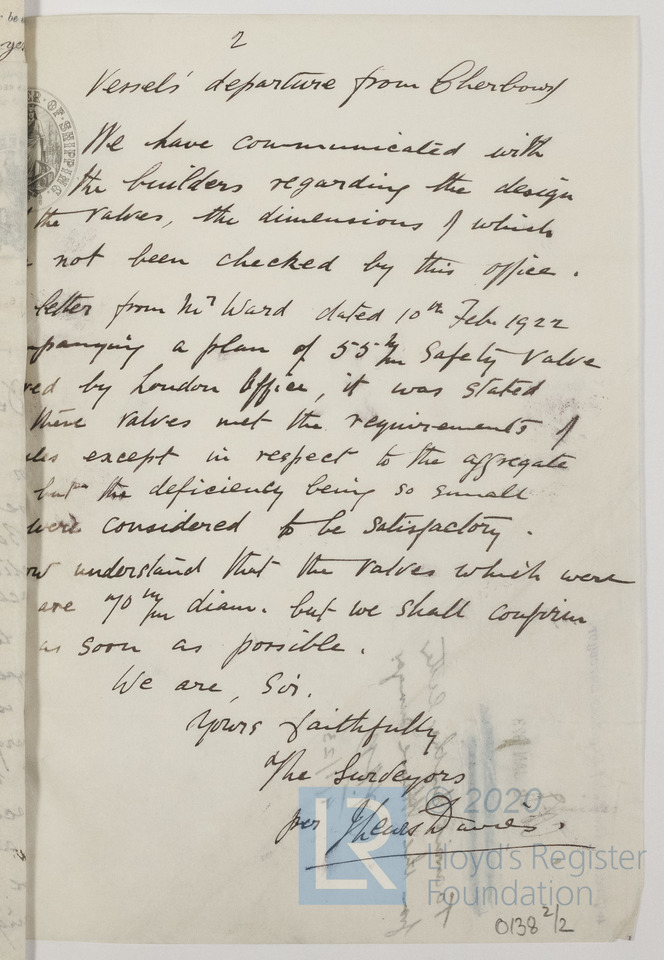 2
Vessels' departure from Cherbourg
We have communicated with
the builders regarding the design
the valves, the dimensions of which
not been checked by this office.
letter from Mr Ward dated 10th Feb. 1922
mpanying a plan of 55 m/m Safety Valve
red by London Office, it was stated
these valves met the requirements of
les except in respect to the aggregate
but the deficiency being so small
were considered to be satisfactory.
ow understand that the valves which were
are 70 m/m diam. but we shall confirm
as soon as possible.
We are, Sir.
Yours faithfully
The Surveyors
per Davies.
OF SHIPPING
LR
© 2020
Lloyd's Register
Foundation
0138 2/2